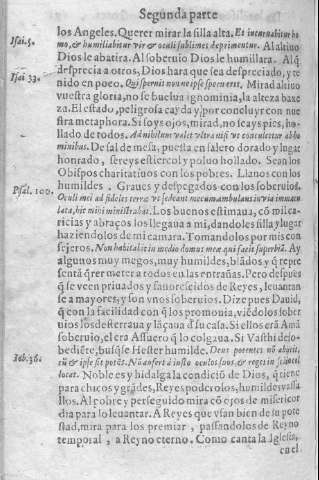 Segunda parte
los Angeles. Querer mirar la silla alta. Et incuruabitur ho
Isai. 5.
mo, & humiliabitur vir & oculi sublimes deprimentur. Al altiuo
Dios le abatira. Al soberuio Dios le humillara. Al q̃
Isai 33.
desprecia a otros, Dios hara que sea despreciado, y te
nido en poco. Qui spernit nonne ipse sperneret. Mirad altiuo
vuestra gloria, no se buelua ignominia, la alteza baxe
za. El estado, peligrosa cayda, y por concluyr con nue
stra metaphora. Si soys ojos, mirad, no seays pies, ha-
llado de todos. Ad nihilum valet vltra nisi vt conculcetur ab ho
minibus. De sal de mesa, puesta en salero dorado y lugar
honrado, sereys estiercol y poluo hollado. Sean los
Obispos charitatiuos con los pobres. Llanos con los
humildes. Graues y despegados con los soberuios.
Psal. 100.
Oculi mei ad fideles terræ vt sedeant mecum ambulans in via immacu
lata, hic mihi ministrabat. Los buenos estimaua, cõ mil ca-
ricias y abraços los llegaua a mi, dandoles silla y lugar
haziendolos de mi camara. Tomandolos por mis con
sejeros. Non habitabit in medio domus meæ qui facit superbiã. Ay
algunos muy megos, muy humildes, blãdos y q̃ repre
sentã q̃rer meter a todos en las entrañas. Pero despues
q̃ se veen priuados y fauorescidos de Reyes, leuantan
se a mayores, y son vnos soberuios. Dize pues Dauid,
q̃ con la facilidad con q̃ los promouia, viẽdolos sober
uios los desterraua y lãçaua d̃ su casa. Si ellos erã Amã
soberuio, el era Assuero q̃ lo colgaua. Si Vasthi deso-
bediẽte, busq̃se Hester humilde. Deus potentes nõ abijcit,
Iob. 36.
cũ & ipse sit potẽs. Nõ aufert à iusto oculos suos, & reges in solio col
locat. Noble es y hidalga la condiciõ de Dios, q̃ tiene
para chicos y grãdes, Reyes poderosos, humildes vassa
llos. Al pobre y perseguido mira cõ ojos de misericor
dia para lo leuantar. A Reyes que vsan bien de su pote
stad, mira para los premiar, passandolos de Reyno
temporal, a Reyno eterno. Como canta la Iglesia,
en el